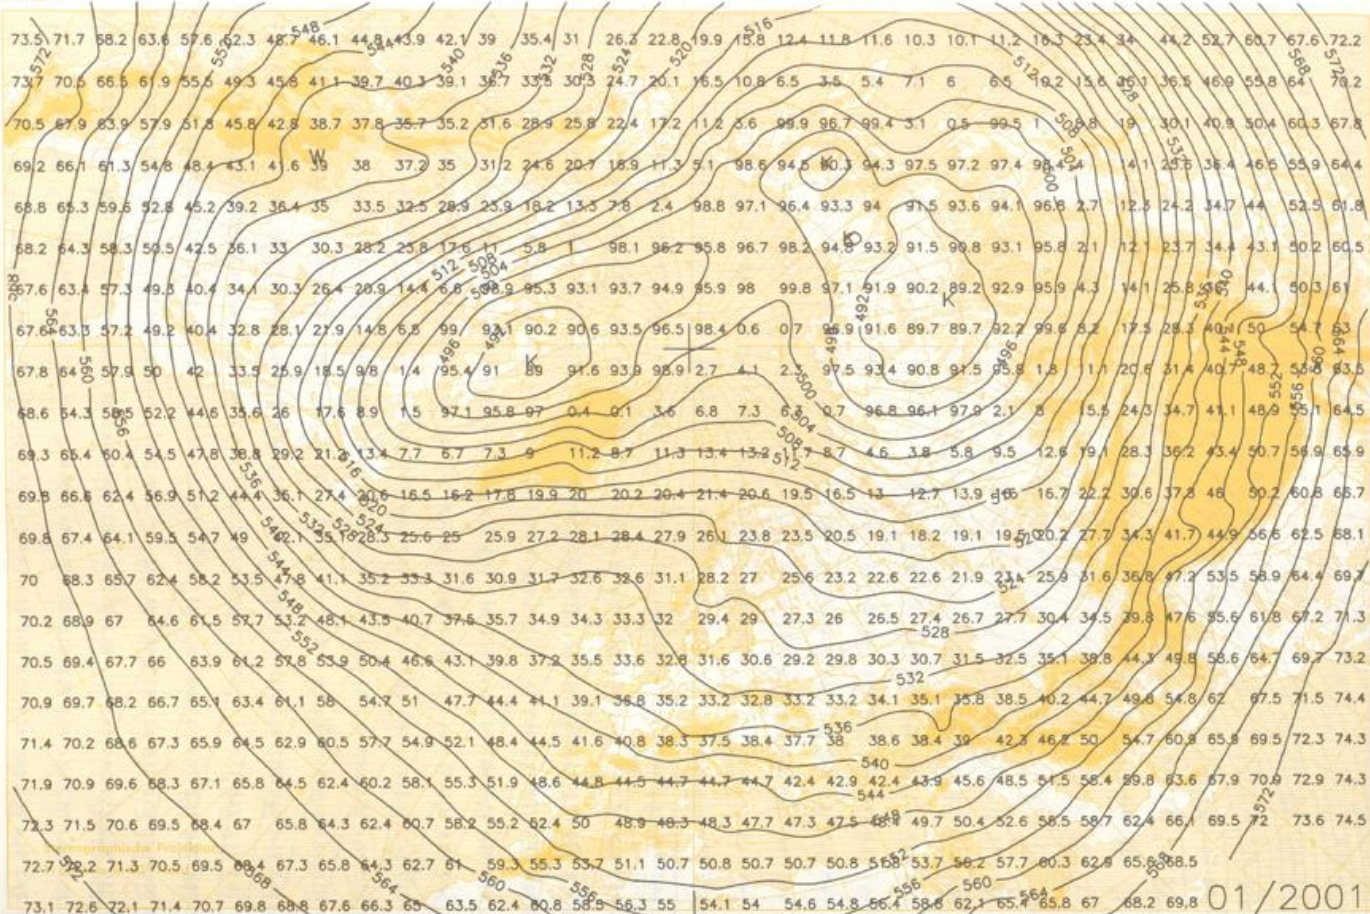 73.5 71.7 68.2 63.6 57.6 52.3 48.7 46.1 44.8 43.9 42.1 39 35.4 31 26.3 22.8 19.9 15.8 12.4 11.8 11.6 10.3 10.1 11.2 16.3 23.4 34 44.2 52.7 60.7 67.6 72.2
73.7 70.5 66.5 61.9 55.5 49.3 45.8 41.1 39.7 40.3 39.1 36.7 33.8 30.3 24.7 20.1 16.5 10.8 6.5 3.5 5.4 7.1 6 6.5 10.2 15.6 26.1 36.5 46.9 55.8 64 70.2
70.5 67.9 63.9 57.9 51.8 45.8 42.8 38.7 37.8 35.7 35.2 31.6 28.9 25.8 22.4 17.2 11.2 3.6 99.9 96.7 99.4 3.1 0.5 99.5 1 8.8 19 30.1 40.9 50.4 60.3 67.8
69.2 66.1 61.3 54.8 48.4 43.1 41.6 39 38 37.2 35 31.2 24.6 20.7 16.9 11.3 5.1 98.6 94.5 90.3 94.3 97.5 97.2 97.4 98.4 4 14.1 25.6 36.4 46.5 55.9 64.4
68.8 65.3 59.6 52.8 45.2 39.2 36.4 35 33.5 32.5 28.9 23.9 18.2 13.3 7.8 2.4 98.8 97.1 96.4 93.3 94 91.5 93.6 94.1 96.8 2.7 12.3 24.2 34.7 44 52.5 61.8
68.2 64.3 58.3 50.5 42.5 36.1 33 30.3 28.2 23.8 17.6 11 5.8 1 98.1 96.2 95.8 96.7 98.2 94.8 93.2 91.5 90.8 93.1 95.8 2.1 12.1 23.7 34.4 43.1 50.2 60.5
67.6 63.4 57.3 49.3 40.4 34.1 30.3 26.4 20.9 14.4 6.6 98.9 95.3 93.1 93.7 94.9 95.9 98 99.8 97.1 91.9 90.2 89.2 92.9 95.9 4.3 14.1 25.8 44.1 50.3 61
67.6 63.3 57.2 49.2 40.4 32.8 28.1 21.9 14.8 6.8 99 93.1 90.2 90.6 93.5 96.5 98.4 0.6 0.7 96.9 91.6 89.7 89.7 92.2 99.6 8.2 17.5 28.3 50 54.7 63
67.8 64 57.9 50 42 33.5 25.9 18.5 9.8 1.4 95.4 91 89 91.6 93.9 98.9 2.7 4.1 2.3 97.5 93.4 90.8 91.5 95.8 1.8 11.1 20.6 31.4 40.7 48.7 63.5
68.6 64.3 58.5 52.2 44.6 35.6 26 17.6 8.9 1.5 97.1 95.8 97 0.4 0.1 3.6 6.8 7.3 0.7 96.8 96.1 97.9 2.1 8 15.5 24.3 34.7 41.1 48.9 55.1 64.5
69.3 65.4 60.4 54.5 47.8 38.8 29.2 21.2 13.4 7.7 6.7 7.3 9 11.2 8.7 11.3 13.4 13.2 11.7 8.7 4.6 3.8 5.8 9.5 12.6 19.1 28.3 36.2 43.4 50.7 56.9 65.9
69.8 66.6 62.4 56.9 51.2 44.4 36.1 27.4 20.6 16.5 16.2 17.8 19.9 20 20.2 20.4 21.4 20.6 19.5 16.5 13 12.7 13.9 16 16.7 22.2 30.6 37.8 46 50.2 60.8 66.7
69.8 67.4 64.1 59.5 54.7 49 42.1 35.1 28.3 25.6 25 25.9 27.2 28.1 28.4 27.9 26.1 23.8 23.5 20.5 19.1 18.2 19.1 19.5 20.2 27.7 34.3 41.7 44.9 56.6 62.5 68.1
70 68.3 65.7 62.4 58.2 53.5 47.8 41.1 35.2 33.3 31.6 30.9 31.7 32.6 32.6 31.1 28.2 27 25.6 23.2 22.6 22.6 21.9 23.4 25.9 31.6 36.8 47.2 53.5 58.9 64.4 69.7
70.2 68.9 67 64.6 61.5 57.7 53.2 48.1 43.5 40.7 37.5 35.7 34.9 34.3 33.3 32 29.4 29 27.3 26 26.5 27.4 26.7 27.7 30.4 34.5 39.8 47.6 55.6 61.8 67.2 71.3
70.5 69.4 67.7 66 63.9 61.2 57.8 53.9 50.4 46.6 43.1 39.8 37.2 35.5 33.6 32.8 31.6 30.6 29.2 29.8 30.3 30.7 31.5 32.5 35.1 38.8 44.3 49.8 58.6 64.7 69.7 73.2
70.9 69.7 68.2 66.7 65.1 63.4 61.1 58 54.7 51 47.7 44.4 41.1 39.1 36.8 35.2 33.2 32.8 33.2 33.2 34.1 35.1 35.8 38.5 40.2 44.7 49.8 54.8 62 67.5 71.5 74.4
71.4 70.2 68.6 67.3 65.9 64.5 62.9 60.5 57.7 54.9 52.1 48.4 44.5 41.6 40.8 38.3 37.5 38.4 37.7 38 38.6 38.4 39 42.3 46.2 50 54.7 60.9 65.9 69.5 72.3 74.3
71.9 70.9 69.6 68.3 67.1 65.8 64.5 62.4 60.2 58.1 55.3 51.9 48.6 44.8 44.5 44.7 44.7 44.7 42.4 42.9 42.4 43.9 45.6 48.5 51.5 58.4 59.8 63.6 67.9 70.9 72.9 74.3
72.3 71.5 70.6 69.5 68.4 67 65.8 64.3 62.4 60.7 58.2 55.2 52.4 50 48.9 48.3 48.3 47.7 47.3 47.5 48.4 49.7 50.4 52.6 56.5 58.7 62.4 66.1 69.5 72 73.6 74.5
Stereographische Projektion
72.7 72.2 71.3 70.5 69.5 68.4 67.3 65.8 64.3 62.7 61 59.3 55.3 53.7 51.1 50.7 50.8 50.7 50.7 50.8 51.8 53.7 56.2 57.7 60.3 62.9 65.8 68.5
73.1 72.6 72.1 71.4 70.7 69.8 68.8 67.6 66.3 65 63.5 62.4 60.8 58.5 56.3 55 54.1 54 54.6 54.8 56.4 58.8 62.1 65.4 65.8 67 68.2 69.8
01/2001
W
K
K
K
572
548
544
540
536
532
528
524
520
516
512
508
504
500
568
572
528
512
508
504
496
492
496
500
504
508
512
520
524
528
532
536
540
544
552
556
560
564
572
568
564
560
556
536
544
548
552
516
520
524
532
540
544
548
552
556
560
564
568
572